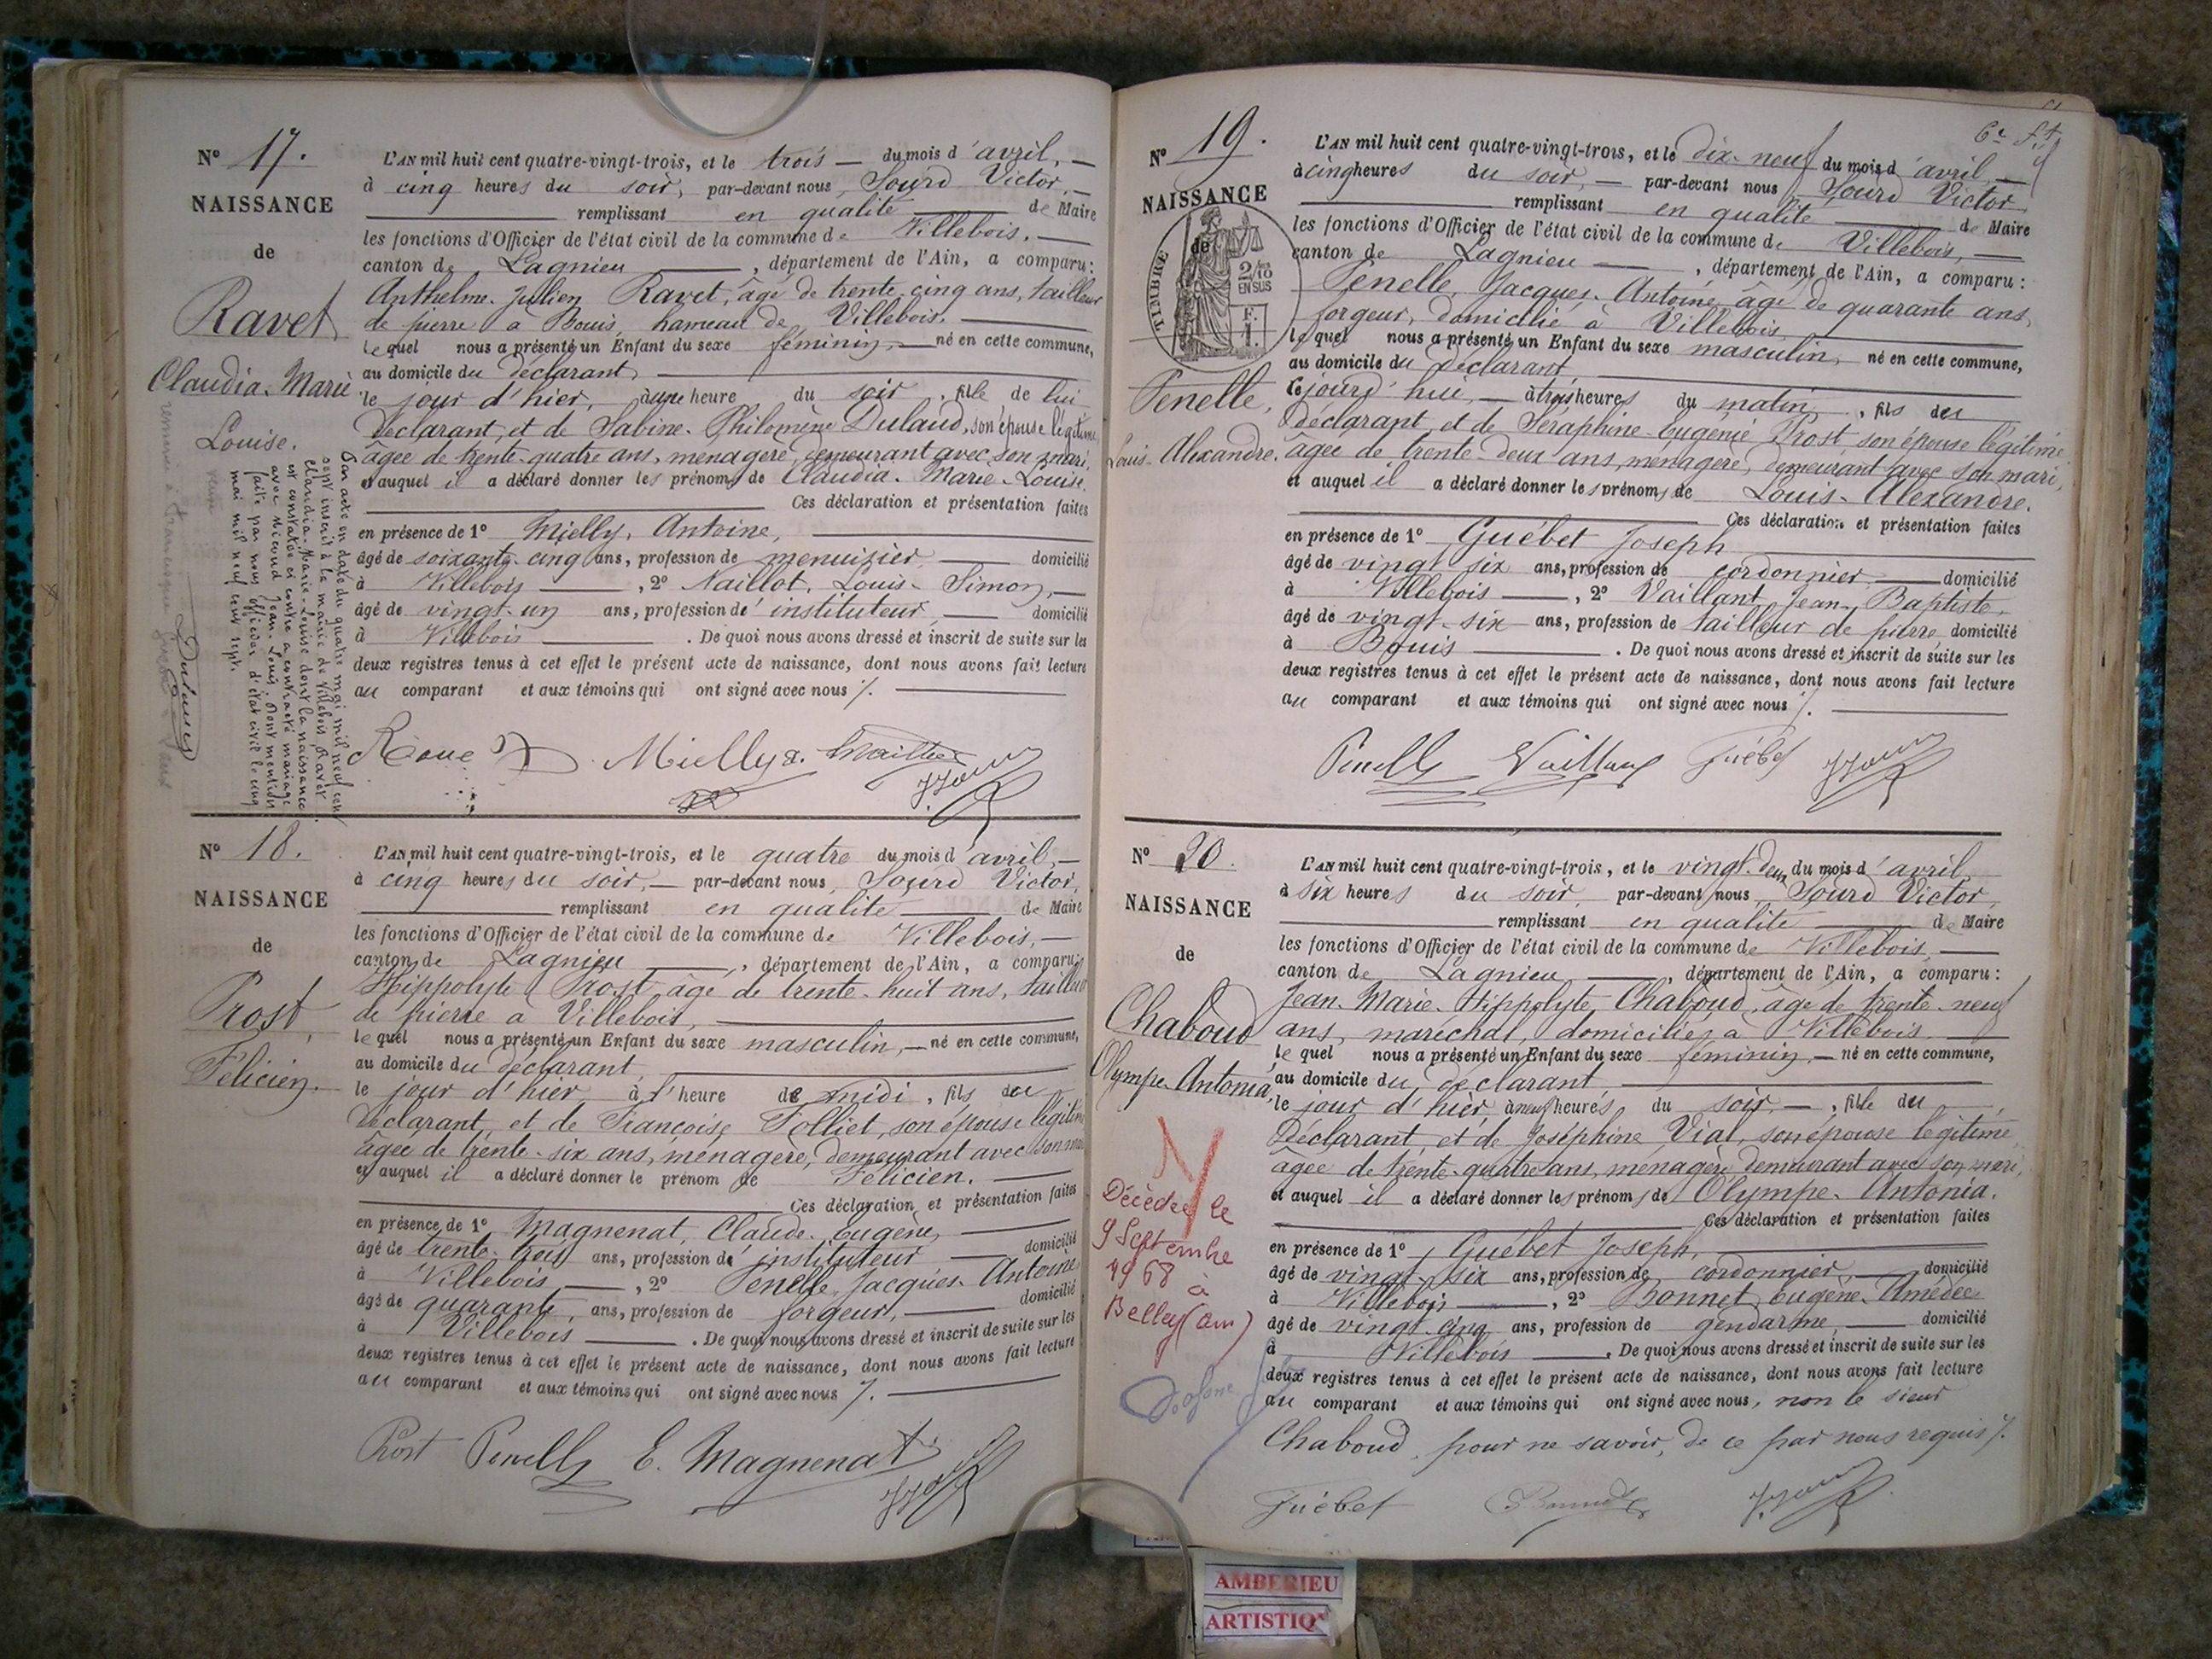 N° 17.
NAISSANCE
de
Ravet
Claudia-Marie
Louise.
L'AN mil huit cent quatre-vingt-trois, et le trois — du mois d'avril, —
à cinq heures du soir, par-devant nous, Sourd Victor, —
remplissant en qualité de Maire
les fonctions d'Officier de l'état civil de la commune de Villebois. —
canton de Lagnieu —, département de l'Ain, a comparu :
Anthelme-Julien Ravet, âgé de trente-cinq ans, tailleur
de pierre à Bouis, hameau de Villebois. —
lequel nous a présenté un Enfant du sexe féminin, — né en cette commune,
au domicile du déclarant, —
le jour d'hier, à une heure du soir, fille de lui
déclarant, et de Sabine-Philomène Dulaud, son épouse légitime
âgée de trente-quatre ans, ménagère, demeurant avec son mari,
et auquel il a déclaré donner les prénoms de Claudia-Marie-Louise.
Ces déclaration et présentation faites
en présence de 1° Mielly, Antoine, —
âgé de soixante-cinq ans, profession de menuisier, — domicilié
à Villebois —, 2° Naillot, Louis-Simon, —
âgé de vingt-un ans, profession de instituteur, — domicilié
à Villebois — . De quoi nous avons dressé et inscrit de suite sur les
deux registres tenus à cet effet le présent acte de naissance, dont nous avons fait lecture
au comparant et aux témoins qui ont signé avec nous ./. —
Mielly a.
Par acte en date du quatre mai mil neuf cent
sept inscrit à la mairie de Villebois, Ravet
Claudia-Marie-Louise dont la naissance
est constatée ci contre a contracté mariage
avec Micoud Jean-Louis. Dont mention
faite par nous officier d'état civil le cinq
mai mil neuf cent sept.
N° 18.
NAISSANCE
de
Prost,
Félicien.
L'AN mil huit cent quatre-vingt-trois, et le quatre du mois d'avril, —
à cinq heures du soir, — par-devant nous, Sourd Victor,
remplissant en qualité — de Maire
les fonctions d'Officier de l'état civil de la commune de Villebois, —
canton de Lagnieu —, département de l'Ain, a comparu :
Hippolyte Prost, âgé de trente-huit ans, tailleur
de pierre à Villebois, —
lequel nous a présenté un Enfant du sexe masculin, — né en cette commune,
au domicile du déclarant, —
le jour d'hier, à l'heure de midi, fils du
déclarant, et de Françoise Folliet, son épouse légitime
âgée de trente-six ans, ménagère, demeurant avec son mari
et auquel il a déclaré donner le prénom de Félicien. —
Ces déclaration et présentation faites
en présence de 1° Magnenat, Claude-Eugène, —
âgé de trente-trois ans, profession de instituteur — domicilié
à Villebois —, 2° Penelle, Jacques-Antoine
âgé de quarante, ans, profession de forgeur, — domicilié
à Villebois — . De quoi nous avons dressé et inscrit de suite sur les
deux registres tenus à cet effet le présent acte de naissance, dont nous avons fait lecture
au comparant et aux témoins qui ont signé avec nous ./. —
Prost Penelle E. Magnenat
N° 19.
NAISSANCE
de
TIMBRE
2/10
EN SUS
F.
1.
Penelle,
Louis-Alexandre.
6e ft
L'AN mil huit cent quatre-vingt-trois, et le dix-neuf du mois d'avril, —
à cinq heures du soir, — par-devant nous, Sourd Victor,
remplissant en qualité — de Maire
les fonctions d'Officier de l'état civil de la commune de Villebois, —
canton de Lagnieu —, département de l'Ain, a comparu :
Penelle, Jacques-Antoine, âgé de quarante ans,
forgeur, domicilié à Villebois, —
lequel nous a présenté un Enfant du sexe masculin, né en cette commune,
au domicile du déclarant, —
cejourd'hui, — à trois heures du matin, fils du
déclarant, et de Séraphine-Eugénie Prost, son épouse légitime
âgée de trente-deux ans, ménagère, demeurant avec son mari,
et auquel il a déclaré donner les prénoms de Louis-Alexandre.
Ces déclaration et présentation faites
en présence de 1° Guébet Joseph —
âgé de vingt-six ans, profession de cordonnier — domicilié
à Villebois —, 2° Vaillant Jean-Baptiste,
âgé de vingt-six ans, profession de tailleur de pierre domicilié
à Bouis — . De quoi nous avons dressé et inscrit de suite sur les
deux registres tenus à cet effet le présent acte de naissance, dont nous avons fait lecture
au comparant et aux témoins qui ont signé avec nous ./. —
Penelle Vaillant Guébet
N° 20.
NAISSANCE
de
Chaboud
Olympe-Antonia,
Décédée le
9 Septembre
1968
à
Belley (ain)
L'AN mil huit cent quatre-vingt-trois, et le vingt-deux du mois d'avril,
à six heures du soir, par-devant nous, Sourd Victor,
remplissant en qualité — de Maire
les fonctions d'Officier de l'état civil de la commune de Villebois, —
canton de Lagnieu, —, département de l'Ain, a comparu :
Jean-Marie-Hippolyte Chaboud, âgé de trente-neuf
ans, maréchal, domicilié à Villebois. —
lequel nous a présenté un Enfant du sexe féminin, — né en cette commune,
au domicile du déclarant —
le jour d'hier, à neuf heures du soir, —, fille du
déclarant et de Joséphine Vial, son épouse légitime,
âgée de trente-quatre ans, ménagère, demeurant avec son mari,
et auquel il a déclaré donner les prénoms de Olympe-Antonia.
Ces déclaration et présentation faites
en présence de 1° Guébet Joseph, —
âgé de vingt-six ans, profession de cordonnier, — domicilié
à Villebois —, 2° Bonnet, Eugène-Amédée
âgé de vingt-cinq ans, profession de gendarme, — domicilié
à Villebois — . De quoi nous avons dressé et inscrit de suite sur les
deux registres tenus à cet effet le présent acte de naissance, dont nous avons fait lecture
au comparant et aux témoins qui ont signé avec nous, non le sieur
Chaboud, pour ne savoir, de ce par nous requis ./.
Guébet
AMBERIEU
ARTISTIQ